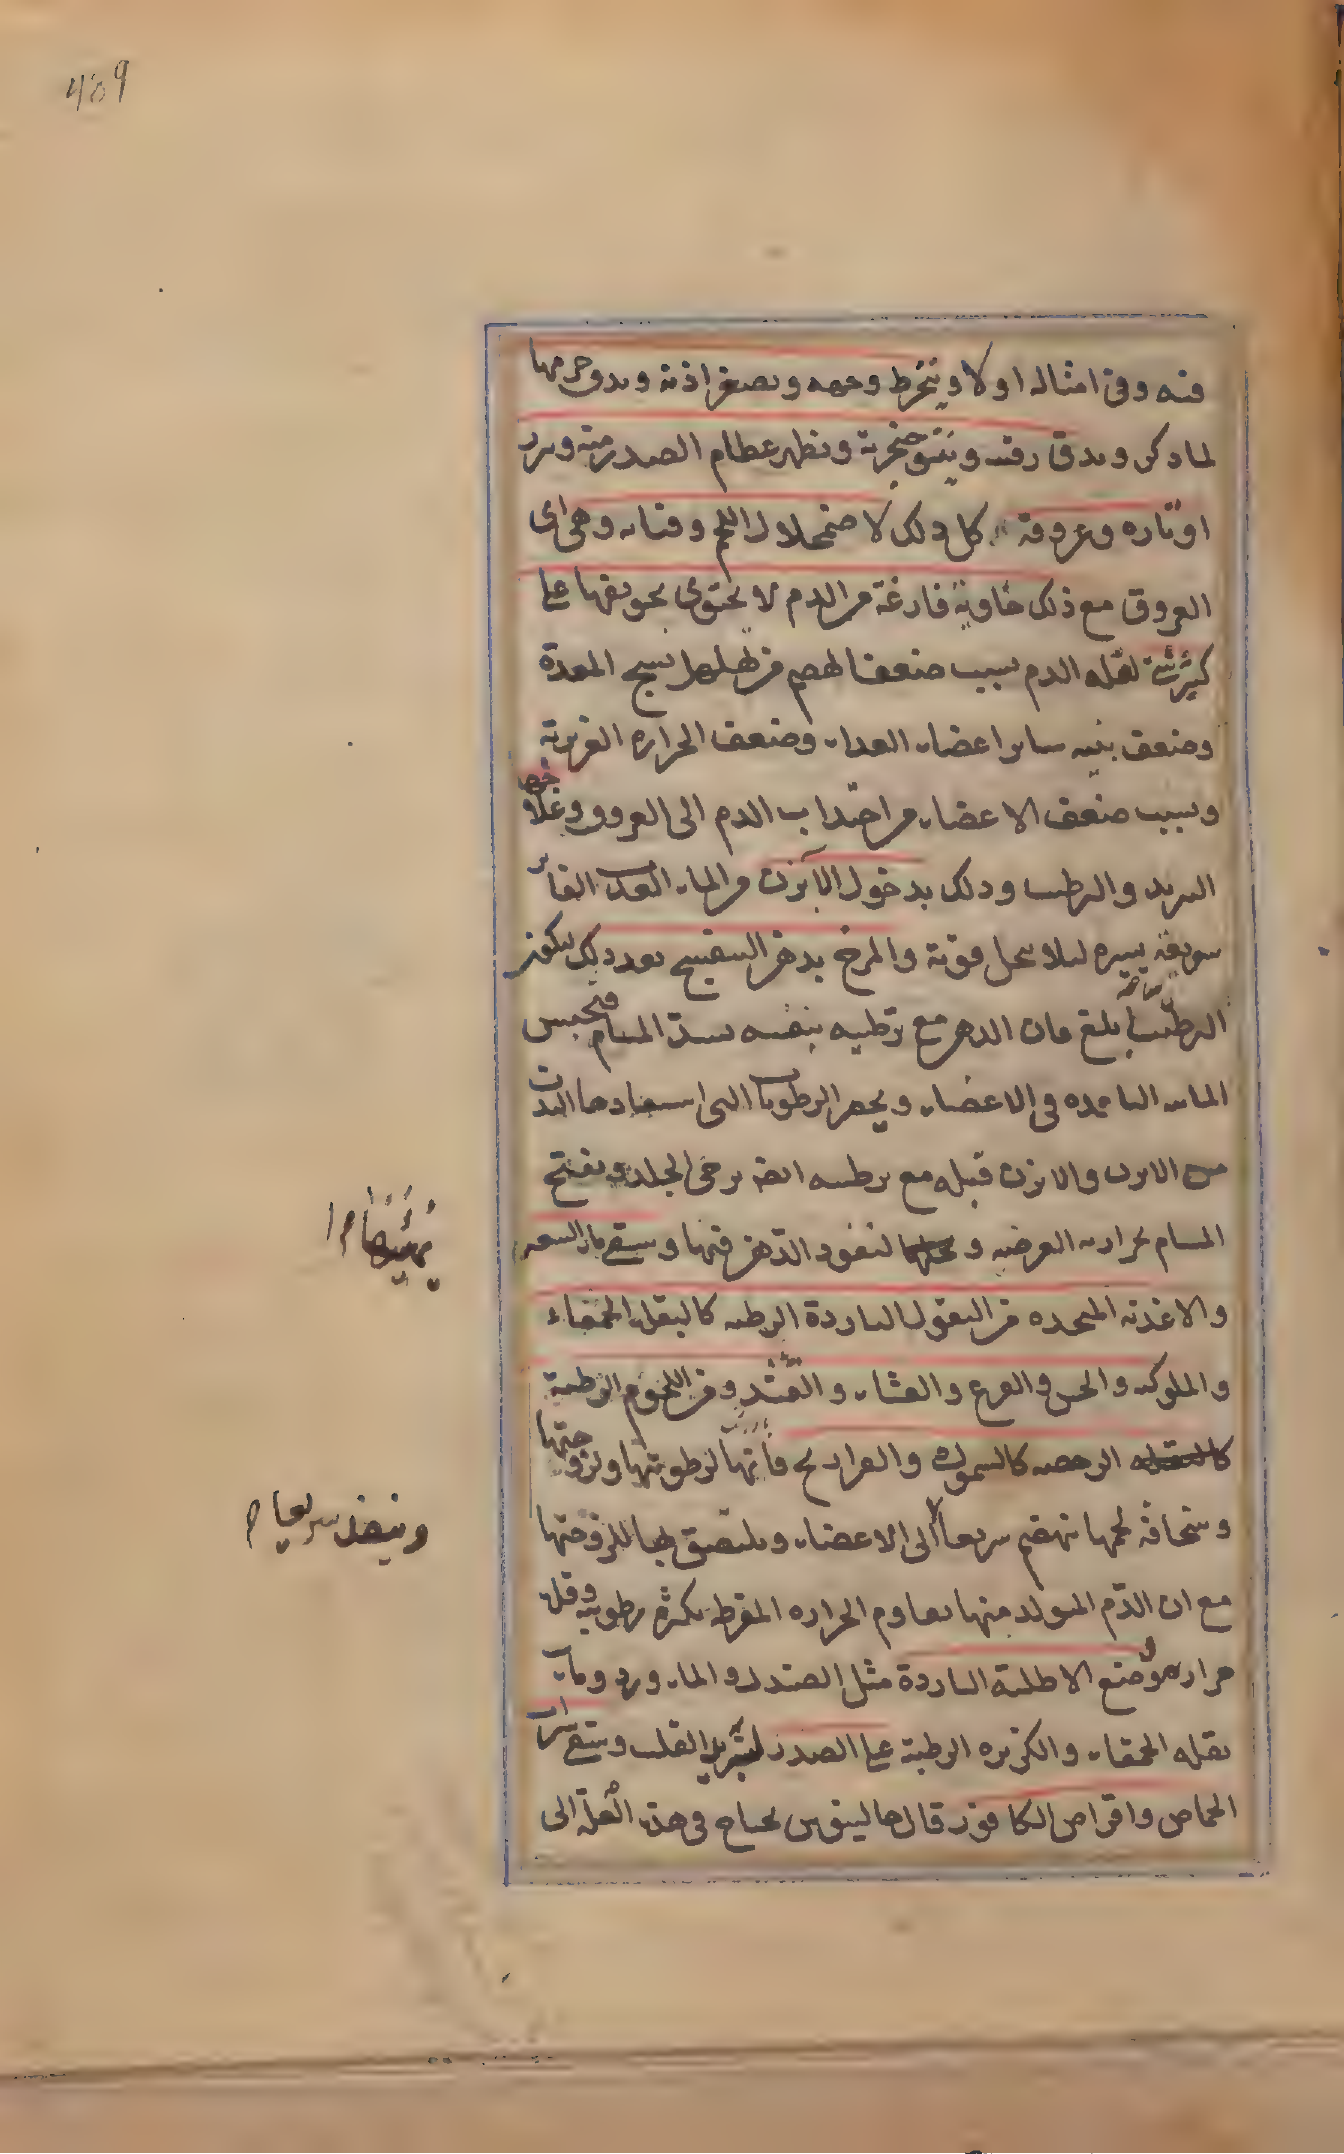 409
فيه وفى امثاله اولا وينخرط وجهه ويصغر اذنه ويدق جرمها
لما ذكر ويدق رقبته وينتو حنجرته ويظهر عظام الصدر منه ويرد
اوتاره وعروقه كل ذلك لاضمحلال اللحم وفنائه وهى اى
العروق مع ذلك خاوية فارغة من الدم لا يحتوى تجويفها على
كثير شئ لقلة الدم بسبب ضعف الهضم من تهلهل نسج المعدة
وضعف بنية ساير اعضاء الغذاء وضعف الحرارة الغريزية
وبسبب ضعف الاعضاء من اجتذاب الدم الى العروق وعلاجها
التبريد والترطيب وذلك بدخول الآبزن من الماء العذب الفاتر
سويعة يسيرة لئلا يحل قوته والمرخ بدهن البنفسج بعد ذلك ليكون
الترطيب ابلغ فان الدهن مع ترطيبه بنفسه يسد المسام فيحبس
المائية النافذة فى الاعضاء ويحصر الرطوبات التى استفادها البدن
من الابزن والابزن قبله مع ترطيبه ايضا يرخى الجلد ويفتح
المسام بحرارته العرضية و لنفوذ الدهن فيها وسقى ماء الشعير
يهيئها
والاغذية المتخذة من البقول الباردة الرطبة كالبقلة الحمقاء
والملوكية والخس والقرع والقثاء والقثد ومن اللحوم الرطبة
الرخصة كالسموك والفراريج فانها لرطوبتها ولزوجتها
وسخافة لحمها تنهضم سريعا الى الاعضاء ويلتصق بها للزوجتها
وينفذ سريعا
مع ان الدم المتولد منها يقاوم الحرارة المفرط بكثرة رطوبته وقلة
حرارته ووضع الاطلية الباردة مثل الصندل والماء ورد وماء
بقلة الحمقاء والكزبرة الرطبة على الصدر لتبريد القلب وسقى شراب
الحماض واقراص الكافور قال جالينوس يحتاج فى هذه العلة الى